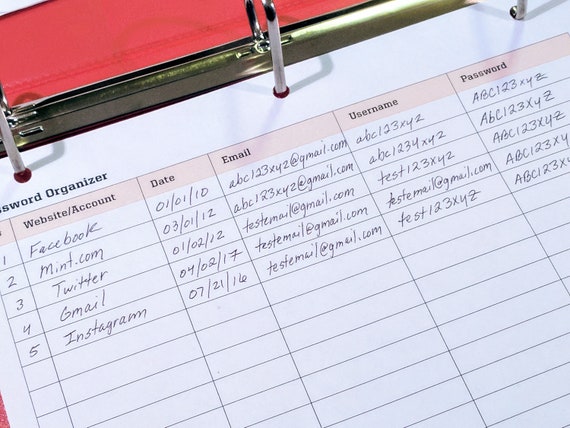 ssword Organizer
Website/Account Date Email Username Password
1 Facebook 01/01/10 abc123xyz@gmail.com abc123xyz ABC123XYZ
2 Mint.com 03/01/12 abc123xyz@gmail.com abc1234xyz AbC123XYZ
3 Twitter 01/02/12 testemail@gmail.com test123xyz ABC123XYZ
4 Gmail 04/02/17 testemail@gmail.com testemail@gmail.com ABC123XYZ
5 Instagram 07/21/16 testemail@gmail.com test123xyz ABC123XY